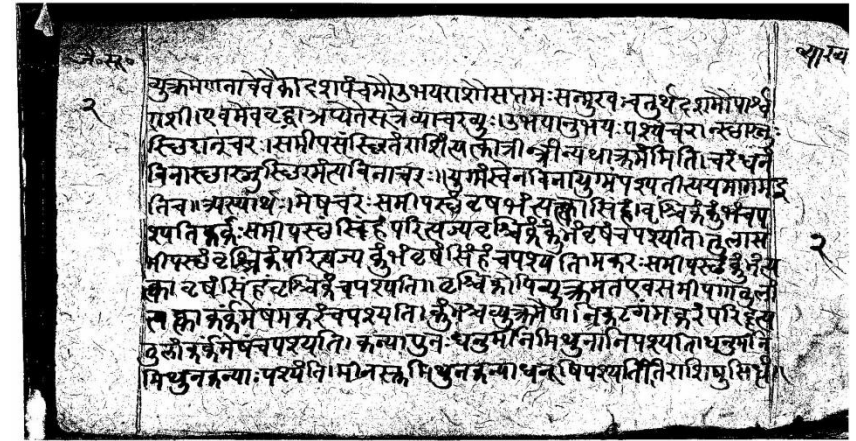 जै० सू०
व्याख्य
२
व्युत्क्रमेणनावेवैकादशपंचमौउभयराशौसप्तमःसन्मुखःचतुर्थदशमौपार्श्व
राशी।एवमेववृद्धाअप्येतैसत्रेव्याचख्युः।उभयानुभयःपश्यचरान्स्थास्नुः
स्थिरान्चरः।समीपसंस्थितंराशिंत्यक्तात्रीन्त्रीन्यथाक्रममिति।चरंधनं
विनास्थास्नुस्थिरमंत्यविनाचरः॥युग्मंस्वेनविनायुग्मंपश्यतीत्ययमागमइ
तिच॥अस्यार्थः।मेषचरःसमीपस्थंवृषभंत्यक्त्वासिंहं।वृश्चिकंकुंभंचप
श्यतिकर्कःसमीपस्थंसिंहंपरित्यज्यवृश्चिकंकुंभंवृषंचपश्यति।तुलास
मीपस्थंवृश्चिकंपरित्यज्यकुंभंवृषंसिंहंचपश्यति।मकरःसमीपस्थंकुंभंत्य
क्त्वावृषंसिंहंवृश्चिकंचपश्यति॥वृश्चिकोपिव्युत्क्रमतएवसमीपगांतुलां
त्यक्त्वाकर्कमेषमकरंचपश्यति।कुंभश्चव्युत्क्रमेणनिकटगंमकरंपरिहृत्य
तुलांकर्कमेषंचपश्यति।कन्यापुनःधनुमीनमिथुनानिपश्यति।धनुर्मीन
मिथुनकन्याःपश्यति।मीनस्तुमिथुनकन्याधनूंषिपश्यतीतिराशिषुसिद्धं॥
२